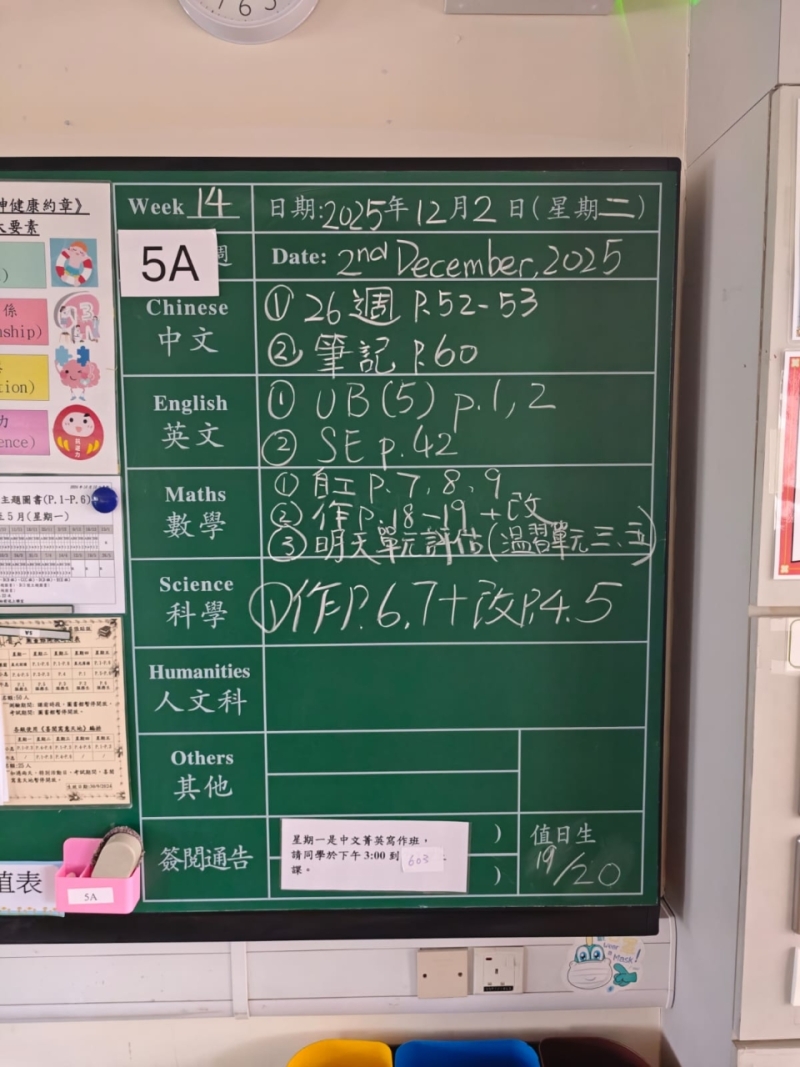 Week 14
日期:2025年12月2日(星期二)
5A
週
Date: 2nd December, 2025
Chinese
中文
① 26週 P.52-53
② 筆記 P.60
English
英文
① UB(5) p.1, 2
② SE p.42
Maths
數學
① 自工 P.7, 8, 9
② 作P.18-19 +改
③ 明天單元評估(溫習單元三、五)
Science
科學
①作P.6,7+改P.4.5
Humanities
人文科
Others
其他
簽閱通告
星期一是中文菁英寫作班，
請同學於下午 3:00 到 603
課。
)
)
值日生
19/20
神健康約章》
要素
係
nship)
tion)
力
ence)
主題圖書(P.1-P.6)
5月(星期一)
值表
5A
Mask!